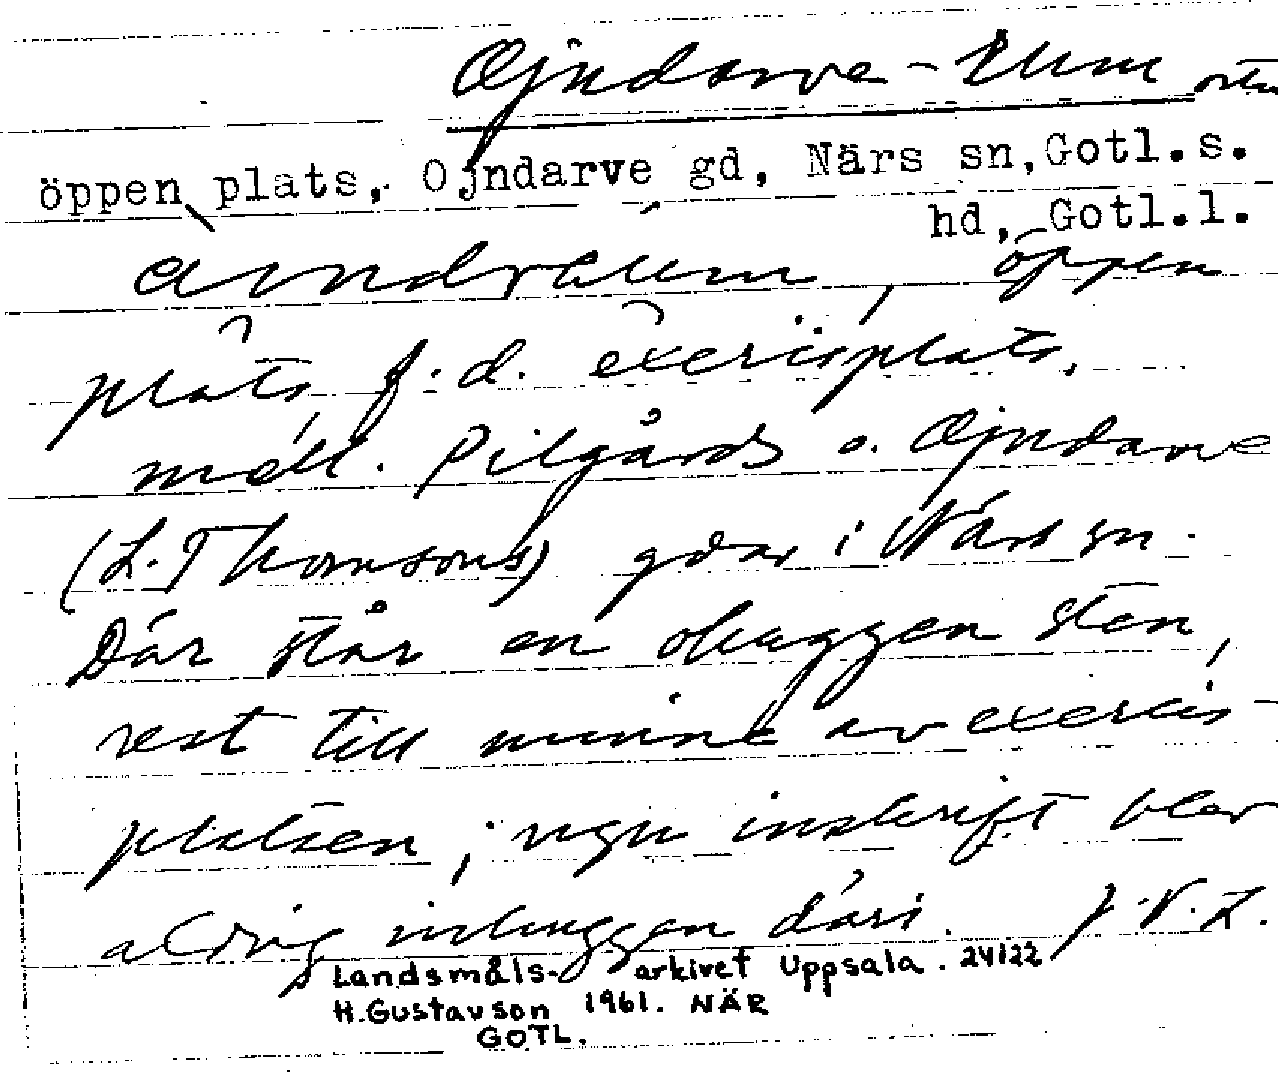 Öjndarve-Elim ortn
öppen plats, Ojndarve gd, Närs sn, Gotl.s.
hd, Gotl.l.
öppen
plats, f.d. exercisplats,
mell. Pilgårds o. Öjndarve
(L. Thomsons) gdar i Närs sn.
Där står en ohuggen sten,
rest till minne av exercis-
platsen; ngn inskrift blev
aldrig inhuggen däri. J.N.L.
Landsmåls- arkivet Uppsala. 24122
H. Gustavson 1961. NÄR
GOTL.